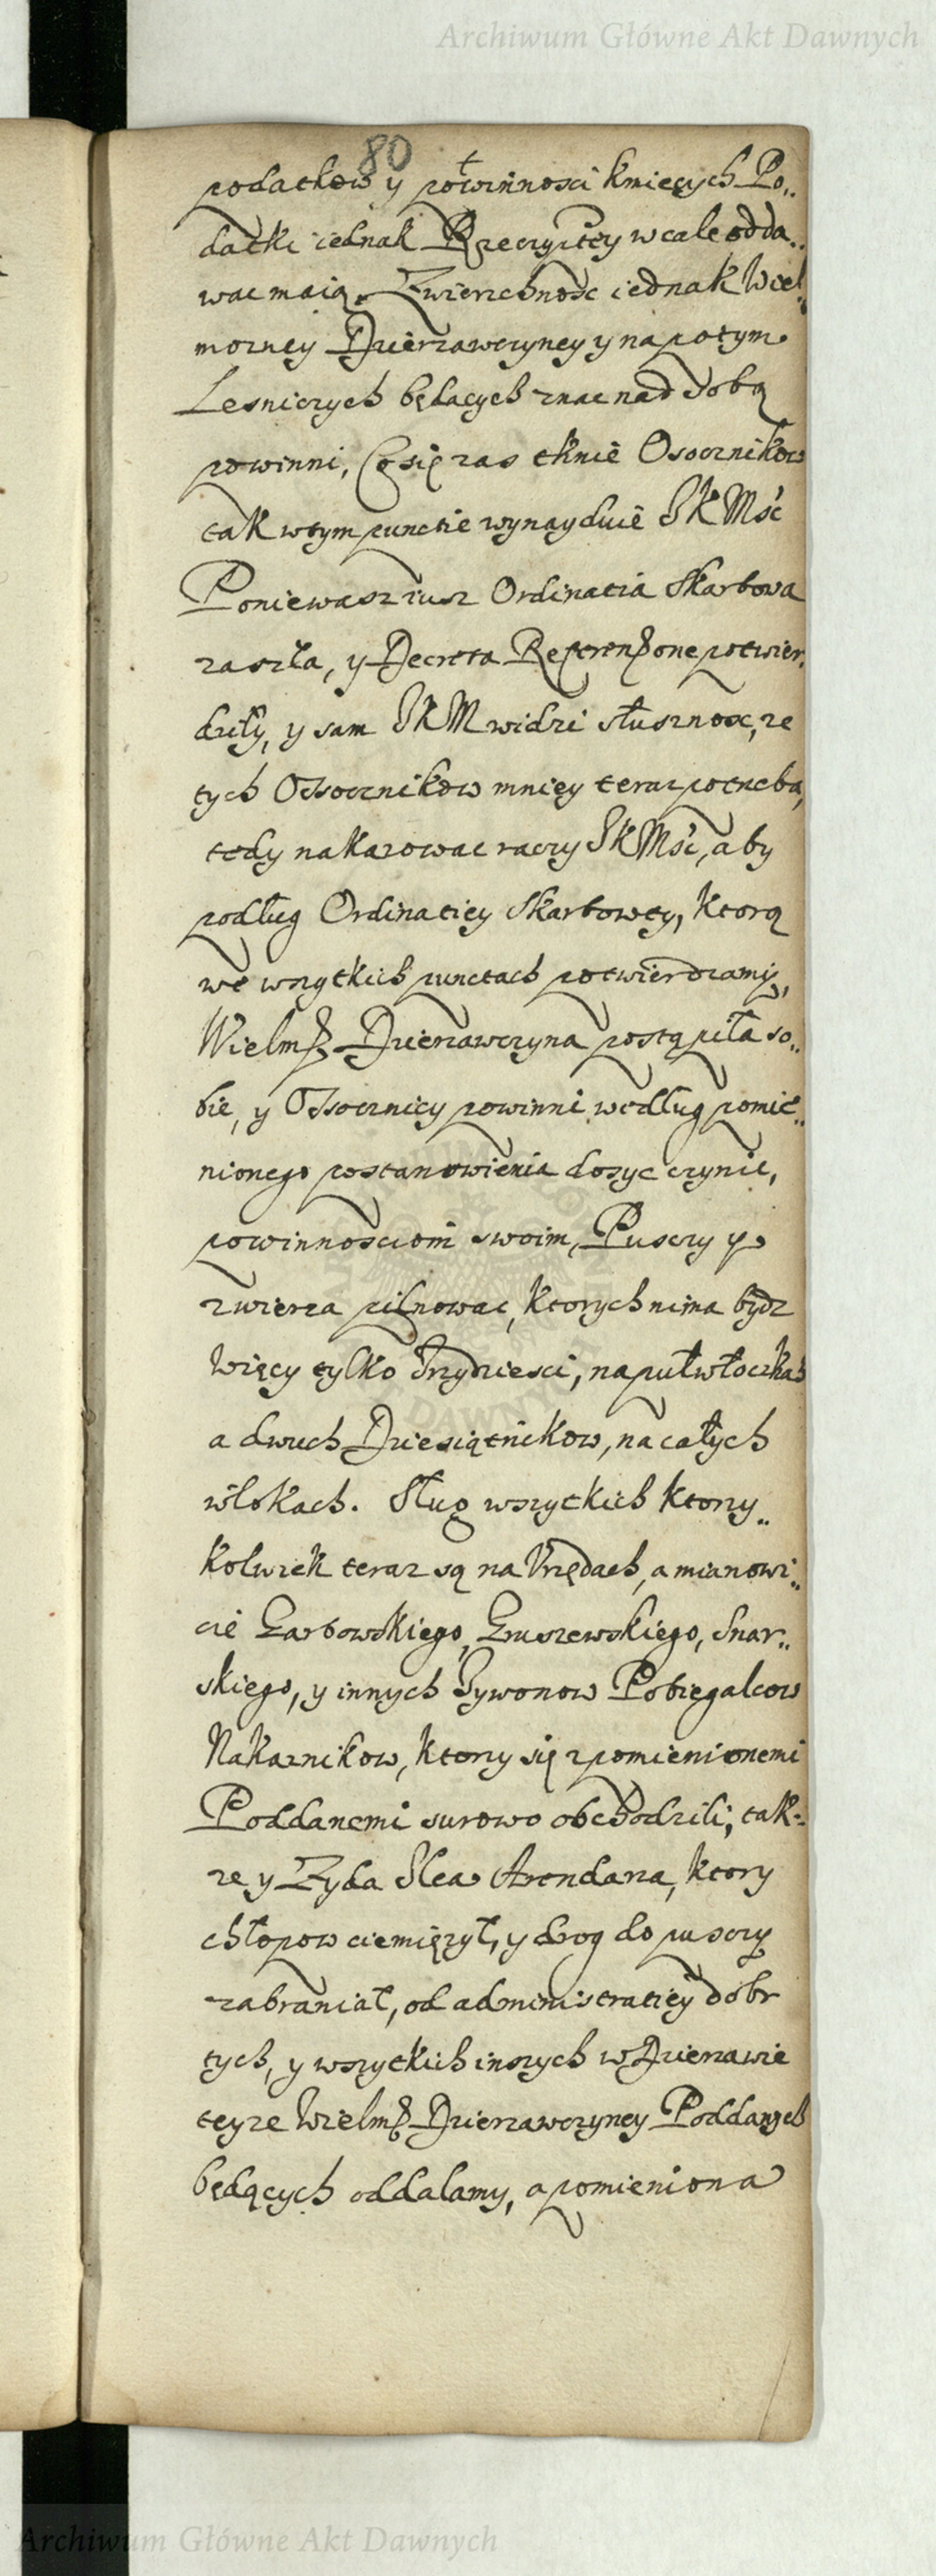 Archiwum Główne Akt Dawnych
80
podatkow y powinnosci kmiecych Po„
datki iednak Rzeczyptey wcale odda„
wac maią. Zwierzchnosc iednak Wiel„
mozney Dzierzawczyney y napotym
Lesniczych będacych znac nad sobą
powinni, Co się zas tknie Osocznikow
tak wtym punctie wynayduie JKMsc
Poniewasz iusz Ordinatia Skarbowa
zaszła, y Decreta potwier„
dziły, y sam JKM widzi słusznosc, ze
tych Ossocznikow mniey teraz potrzeba,
tedy nakazowac raczy JKMsc, aby
podług Ordinatiey Skarbowey, ktorą
we wszytkich punctach potwierdzamy,
Wielmz Dzierzawczyna postąpiła so„
bie, y Ossocznicy powinni według pomie„
nionego postanowienia dosyc czynic,
powinnosciom swoim, Pusczy y
zwierza pilnowac, ktorych nima bydz
Więcy tylko Trzydziesci, na pułwłoczkach
a dwuch Dziesiętnikow, na całych
włokach. Sług wszytkich ktorzy„
kolwiek teraz są na Vrzędach, a mianowi„
cie Garbowskiego, Gruszewskiego, Snar„
skiego, y innych Tywonow Pobiegalcow
Nakaznikow, ktorzy się z pomienionemi
Poddanemi surowo obchodzili, tak„
ze y Zyda Arendarza, ktory
chłopow ciemięzył, y drog do pusczy
zabraniał, od administratiey dobr
tych, y wszytkich inszych w Dzierzawie
teyze Wielmz Dzierzawczyney Poddanych
będących oddalamy, a pomieniona
Archiwum Główne Akt Dawnych